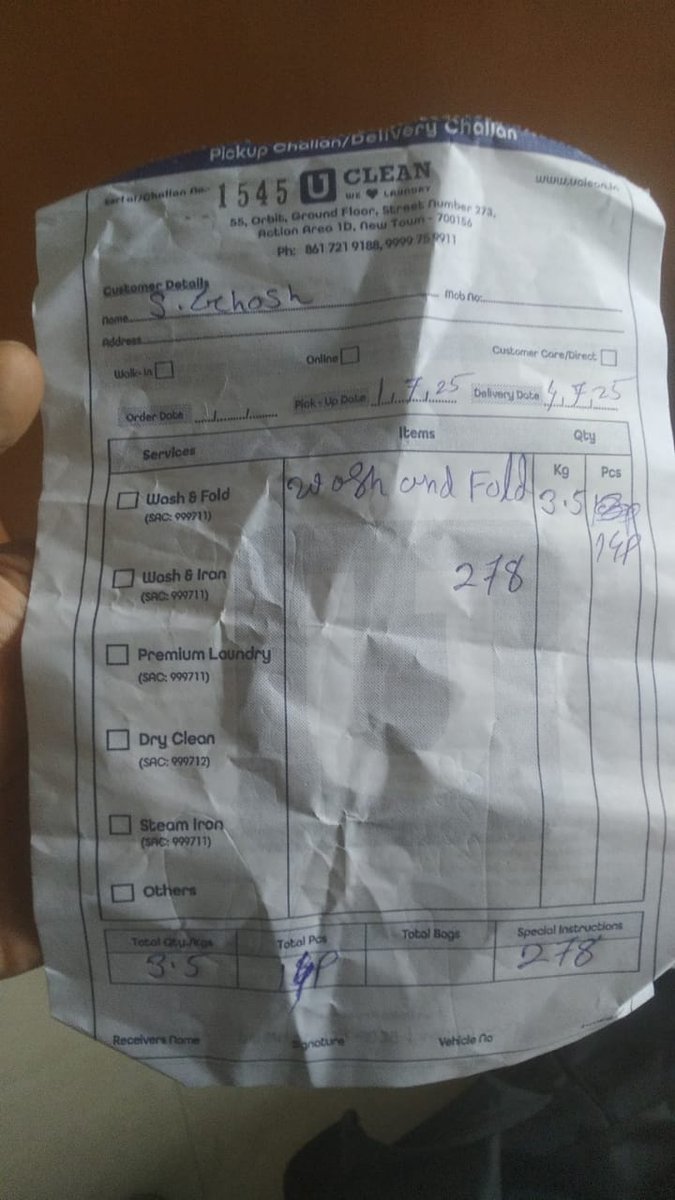 Pickup Challan/Delivery Challan
Serial/Challan No. 1545 U CLEAN www.uclean.in
WE ♥ LAUNDRY
55, Orbit, Ground Floor, Street Number 273,
Action Area 1D, New Town - 700156
Ph: 861 721 9188, 9999 9911
Customer Details
Name S. Ghosh Mob No:
Address
Walk-in Online Customer Care/Direct
Order Date Pick-Up Date 1.7.25 Delivery Date 4.7.25
Services Items Qty
Kg Pcs
Wash & Fold Wash and Fold 3.5
(SAC: 999711) 14P
Wash & Iron 278
(SAC: 999711)
Premium Laundry
(SAC: 999711)
Dry Clean
(SAC: 999712)
Steam Iron
(SAC: 999711)
Others
Total Qty./Kgs Total Pcs Total Bags Special Instructions
3.5 14P 278
Receivers Name Signature Vehicle No